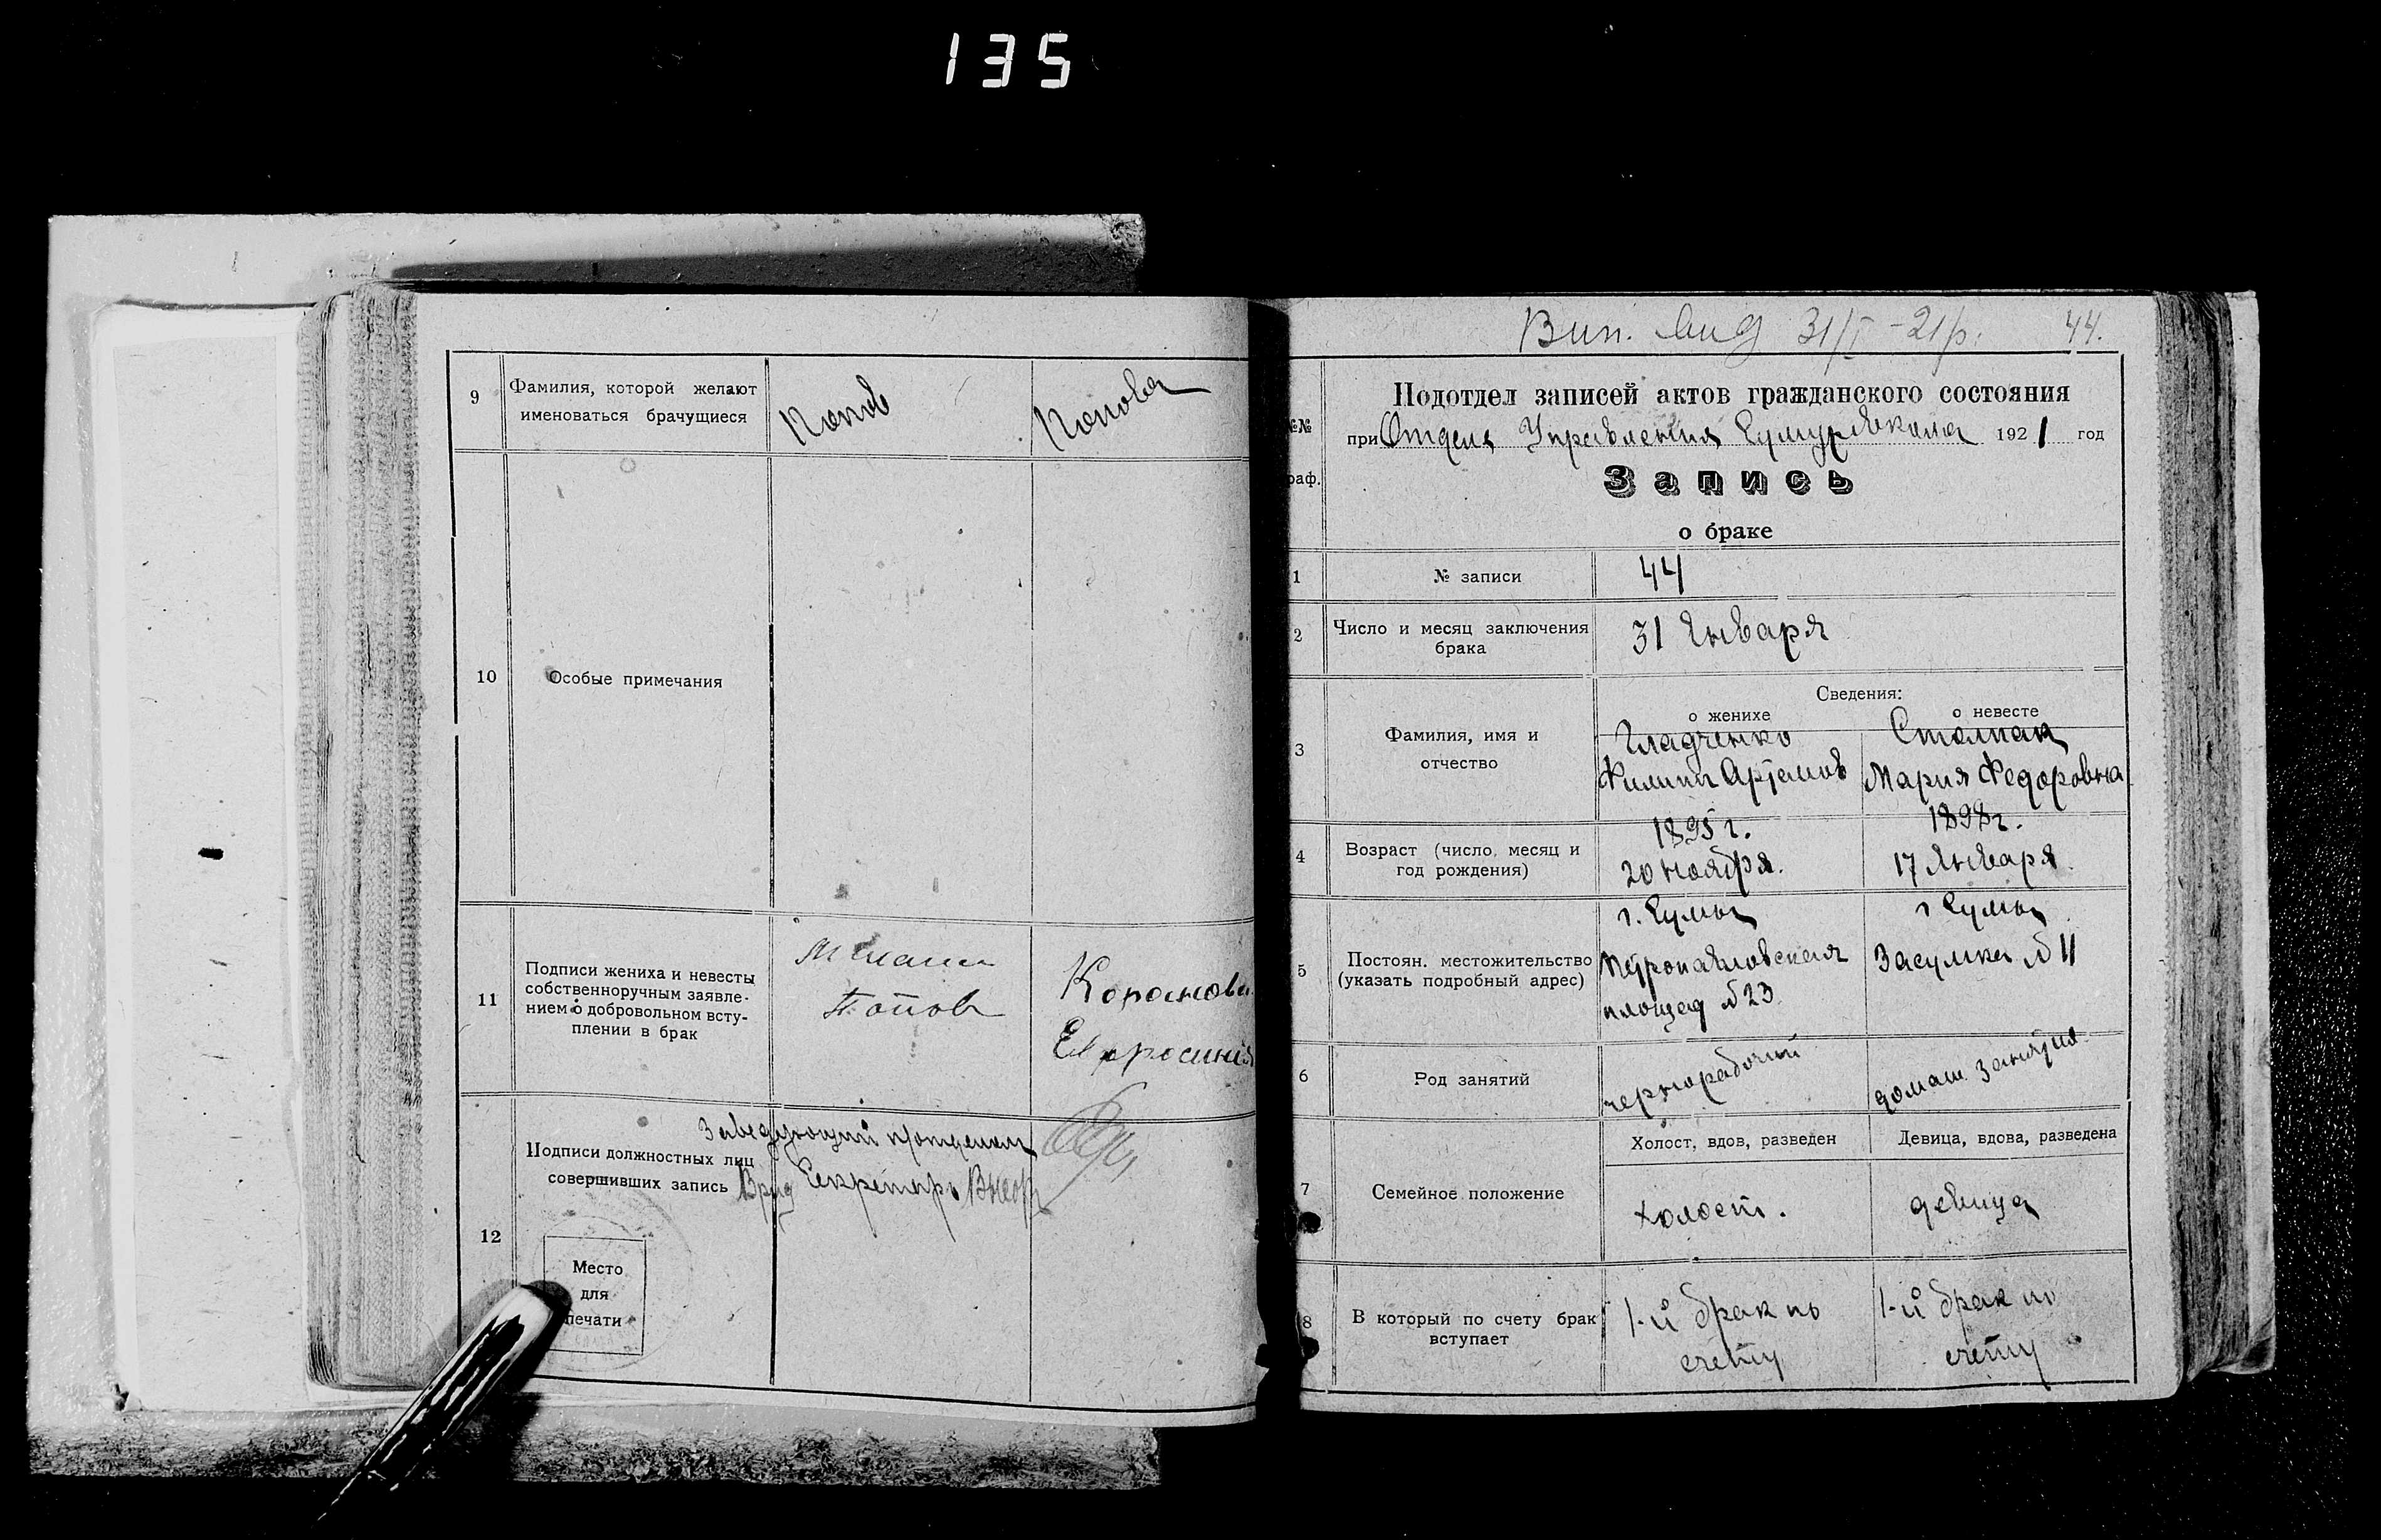 135
9
Фамилия, которой желают
именоваться брачущиеся
Попов
Попова
10
Особые примечания
11
Подписи жениха и невесты
собственноручным заявле-
нием о добровольном всту-
плении в брак
Попов
Евфросиния
12
Подписи должностных лиц
совершивших запись
Заведующий
Врид Секретарь
Место
для
печати
Вип. вид 31/I-21р. 44.
№№
раф.
Подотдел записей актов гражданского состояния
при Отделе Управления 1921 год
Запись
о браке
1
№ записи
44
2
Число и месяц заключения
брака
31 Января
Сведения:
о женихе
о невесте
3
Фамилия, имя и
отчество
Гладченко
Филипп Артемов
Столпак
Мария Федоровна
4
Возраст (число, месяц и
год рождения)
1895 г.
20 ноября.
1898 г.
17 Января.
5
Постоян. местожительство
(указать подробный адрес)
г. Сумы
Петропавловская
площад №23
г Сумы
Засумка №11
6
Род занятий
чернорабочий
домаш. занятия
7
Семейное положение
Холост, вдов, разведен
Девица, вдова, разведена
холост.
девица
8
В который по счету брак
вступает
1-й брак по
счету
1-й брак по
счету